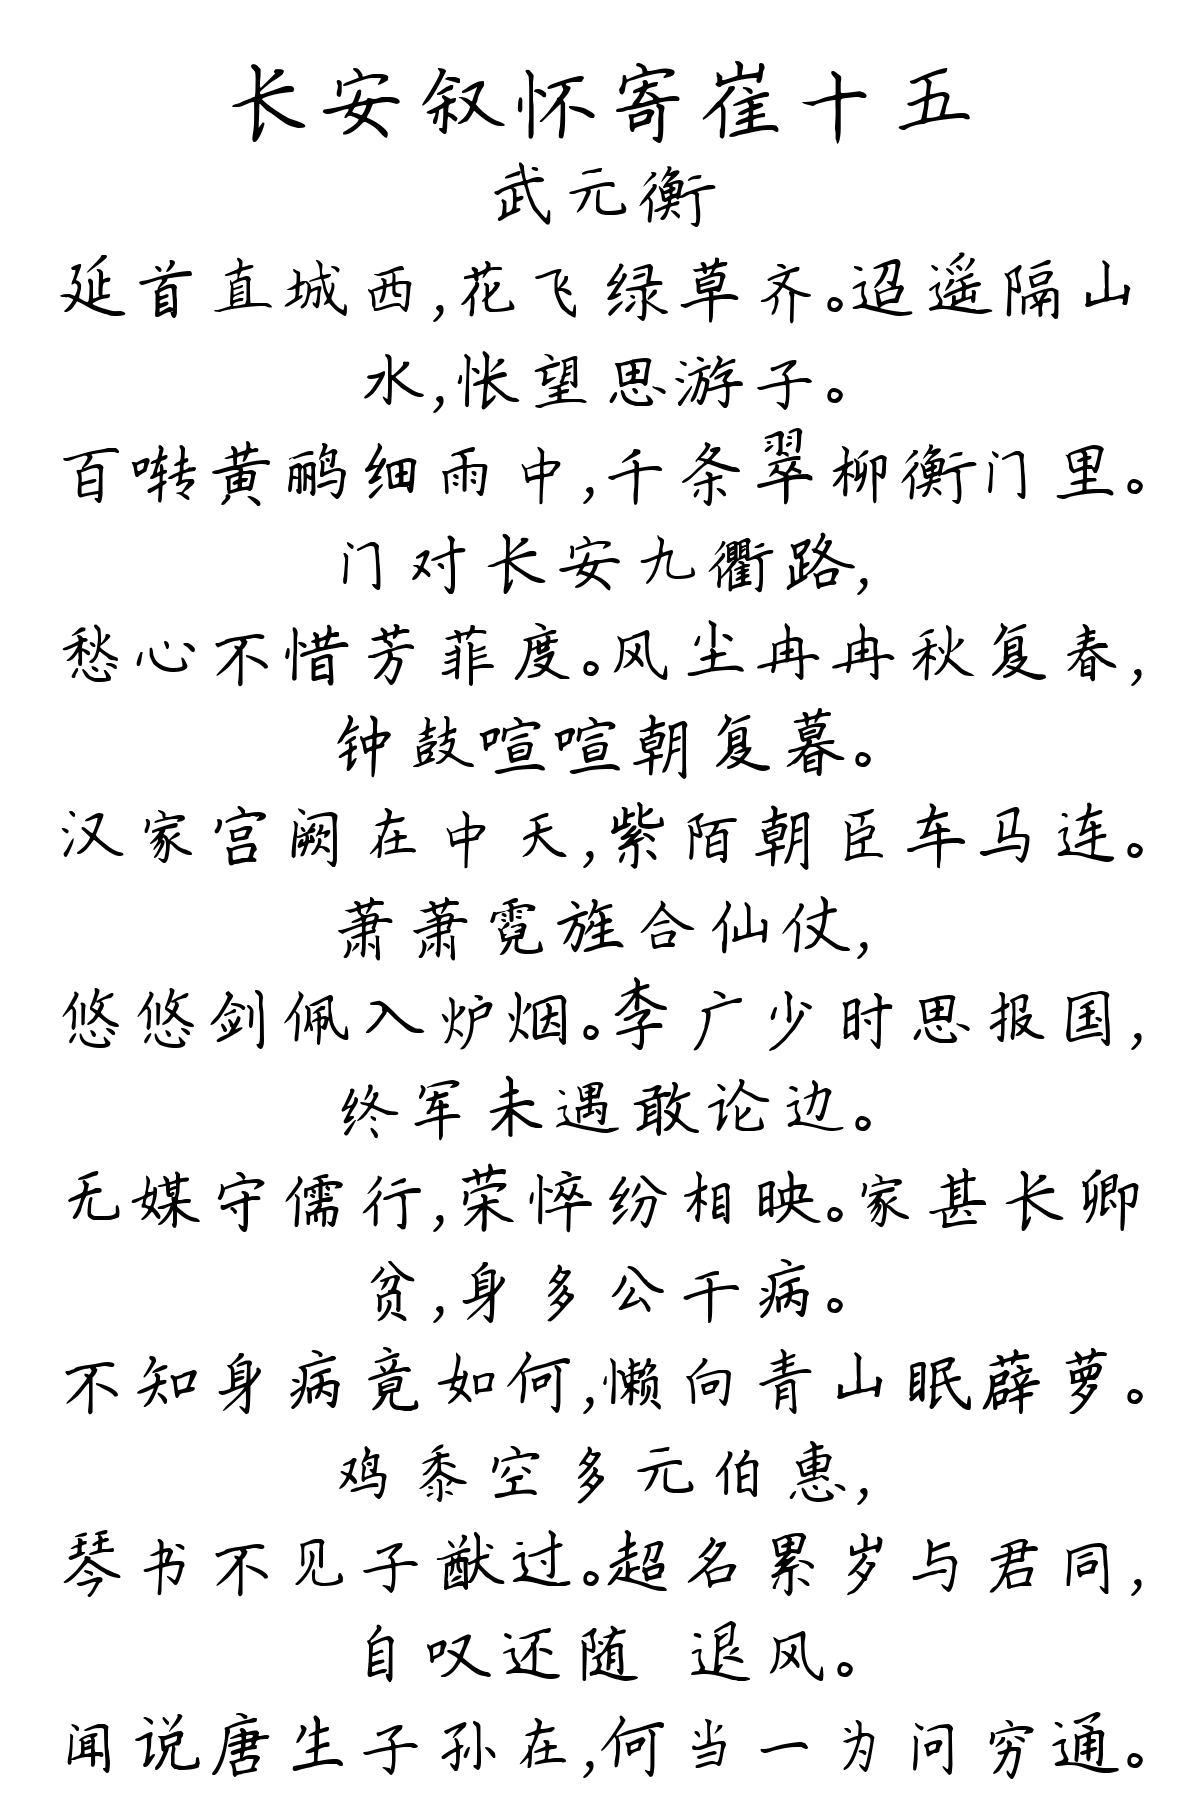 长安叙怀寄崔十五
武元衡
延首直城西,花飞绿草齐。迢遥隔山
水,怅望思游子。
百啭黄鹂细雨中,千条翠柳衡门里。
门对长安九衢路,
愁心不惜芳菲度。风尘冉冉秋复春,
钟鼓喧喧朝复暮。
汉家宫阙在中天,紫陌朝臣车马连。
萧萧霓旌合仙仗,
悠悠剑佩入炉烟。李广少时思报国,
终军未遇敢论边。
无媒守儒行,荣悴纷相映。家甚长卿
贫,身多公干病。
不知身病竟如何,懒向青山眠薜萝。
鸡黍空多元伯惠,
琴书不见子猷过。超名累岁与君同,
自叹还随 退风。
闻说唐生子孙在,何当一为问穷通。